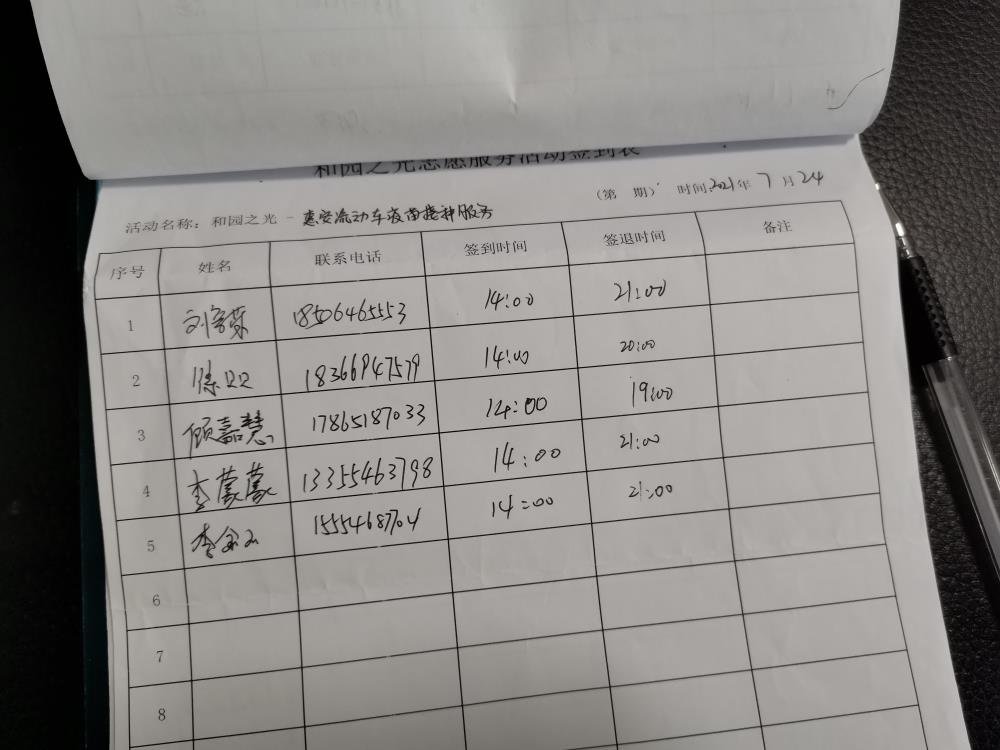 和园之光志愿服务活动签到表
（第 期） 时间:2021年 7 月 24
活动名称：和园之光－惠安流动车疫苗接种服务
序号 姓名 联系电话 签到时间 签退时间 备注
1 刘 18506465553 14:00 21:00
2 陈贝贝 18366947579 14:00 20:00
3 顾嘉慧 17865187033 14:00 19:00
4 李蒙蒙 13355463798 14:00 21:00
5 李 15554687704 14:00 21:00
6
7
8